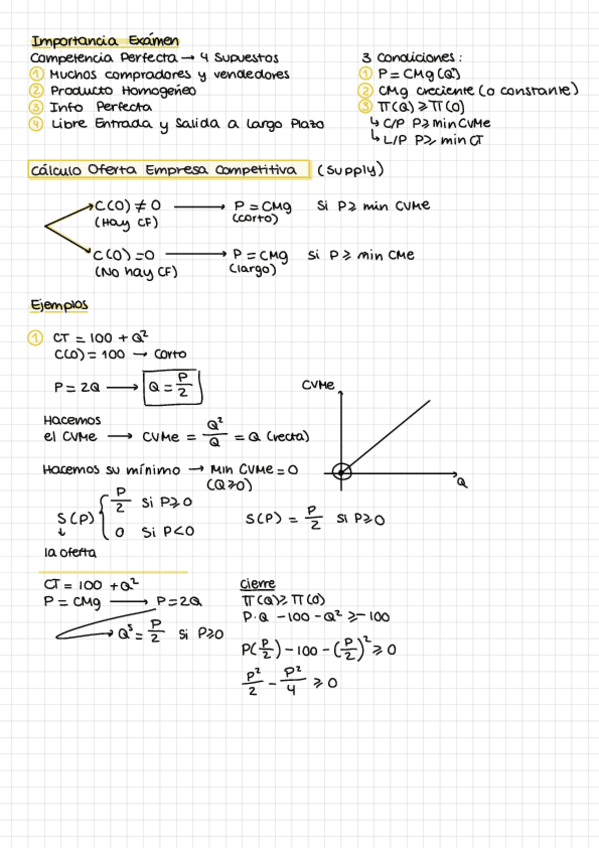 Importancia Exámen
Competencia Perfecta → 4 Supuestos
① Muchos compradores y vendedores
② Producto Homogéneo
③ Info Perfecta
④ Libre Entrada y Salida a Largo Plazo
3 condiciones:
① P = CMg(Q*)
② CMg creciente (o constante)
③ Π(Q) ≥ Π(0)
↳ C/P P ≥ min CVMe
↳ L/P P ≥ min CT
Cálculo Oferta Empresa Competitiva (Supply)
C(0) ≠ 0 → P = CMg si P ≥ min CVMe
(Hay CF) (corto)
C(0) = 0 → P = CMg si P ≥ min CMe
(No hay CF) (largo)
Ejemplos
① CT = 100 + Q²
C(0) = 100 → corto
P = 2Q → Q = P/2
Hacemos
el CVMe → CVMe = Q²/Q = Q (recta)
Hacemos su mínimo → Min CVMe = 0
(Q ≥ 0)
S(P) { P/2 si P ≥ 0
0 si P < 0
↓
la oferta
S(P) = P/2 si P ≥ 0
CVMe
Q
CT = 100 + Q²
P = CMg → P = 2Q
→ Qˢ = P/2 si P ≥ 0
Cierre
Π(Q) ≥ Π(0)
P·Q - 100 - Q² ≥ -100
P(P/2) - 100 - (P/2)² ≥ 0
P²/2 - P²/4 ≥ 0